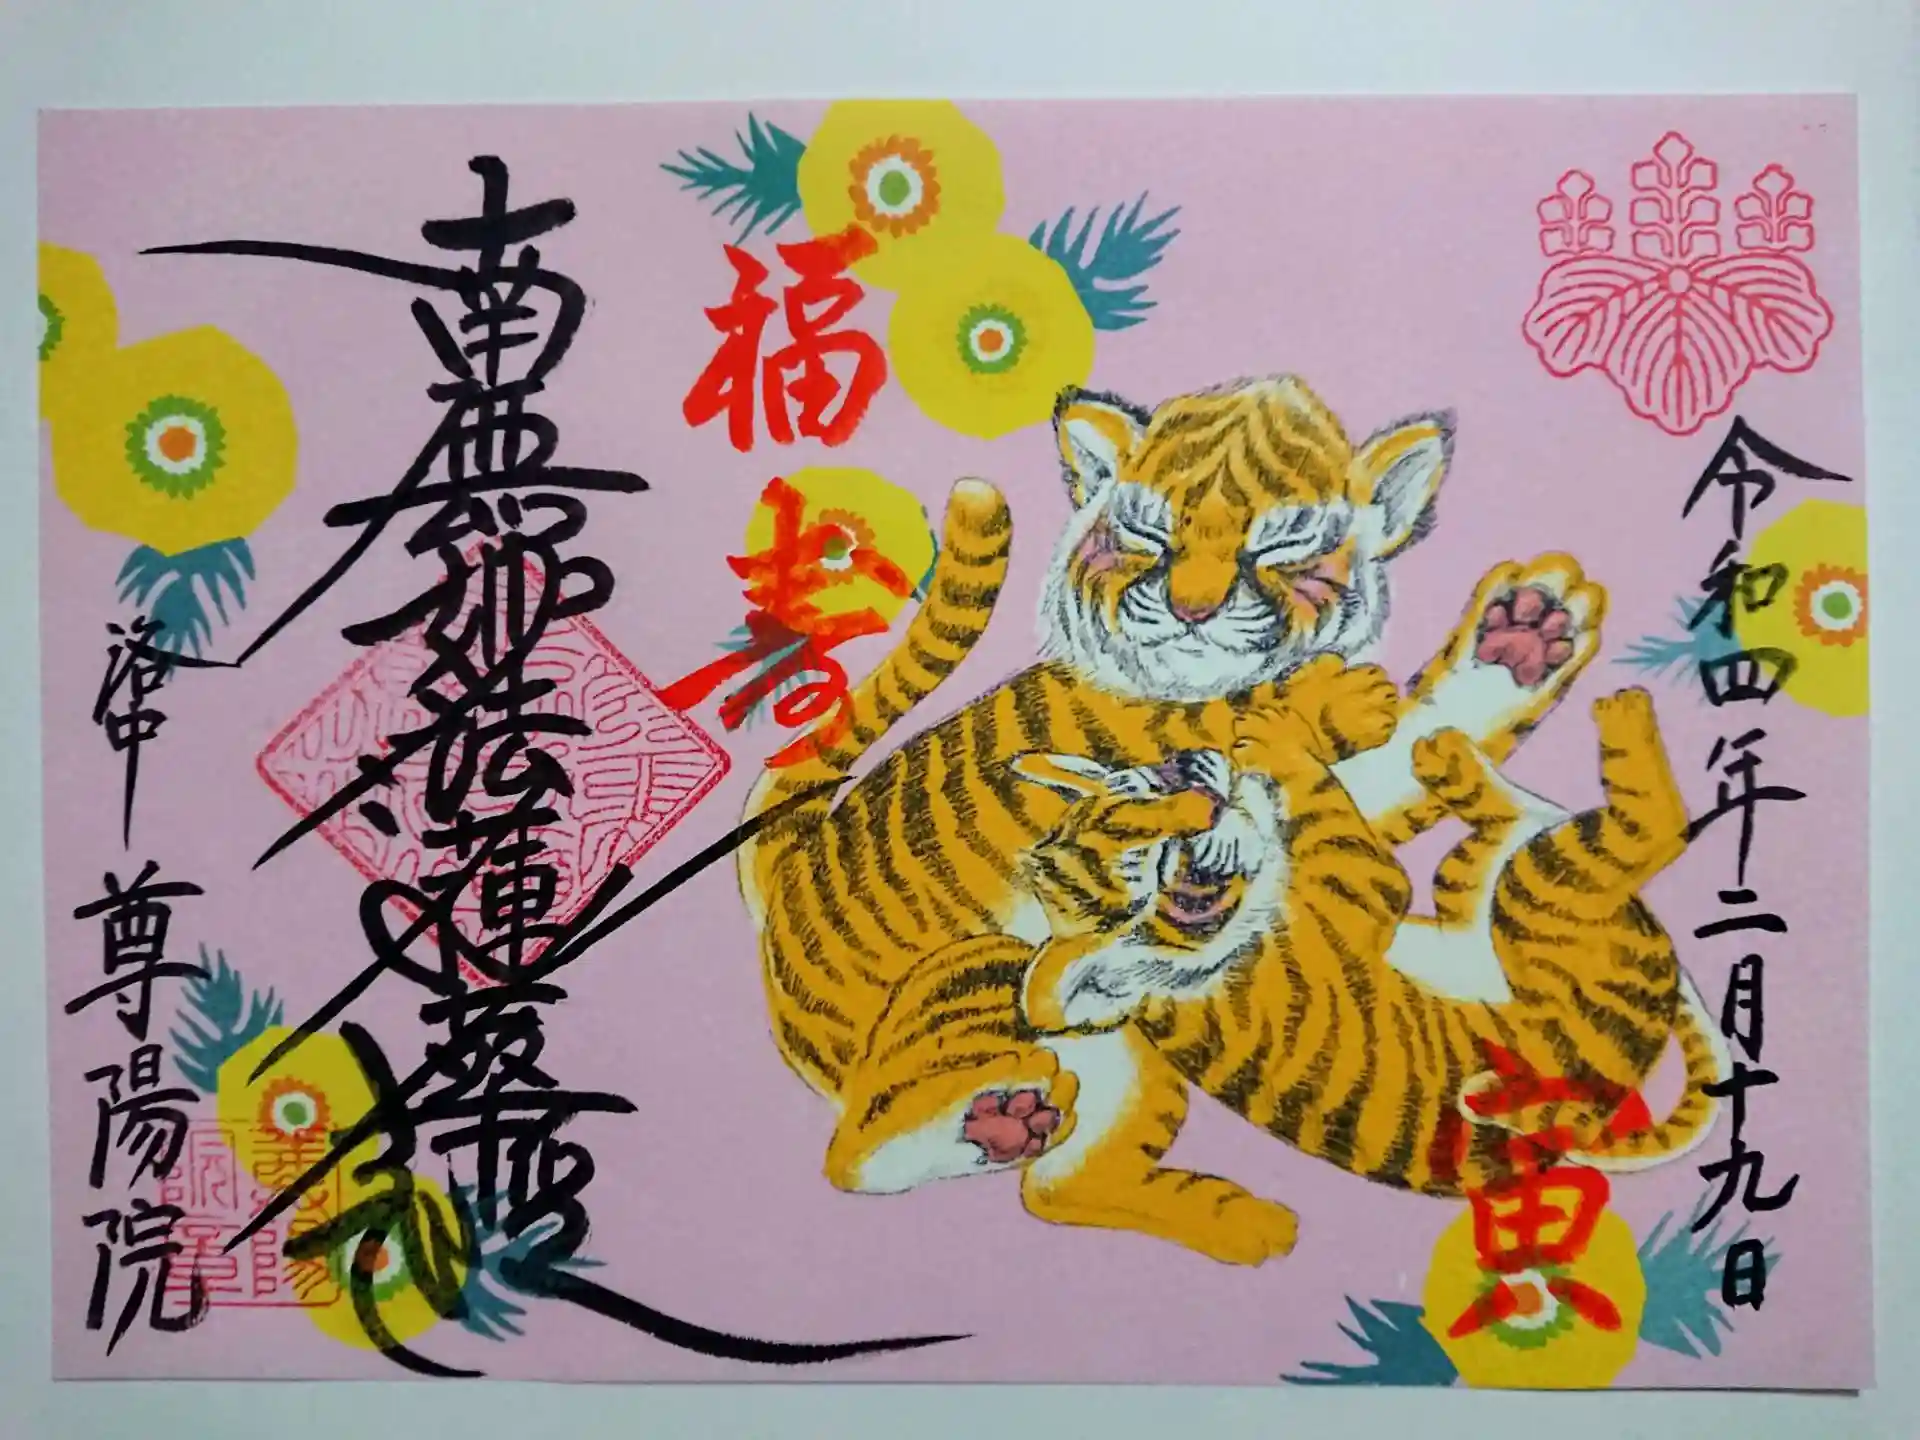 令和四年二月十九日
寅
福寿
南無妙法蓮華経
洛中 尊陽院